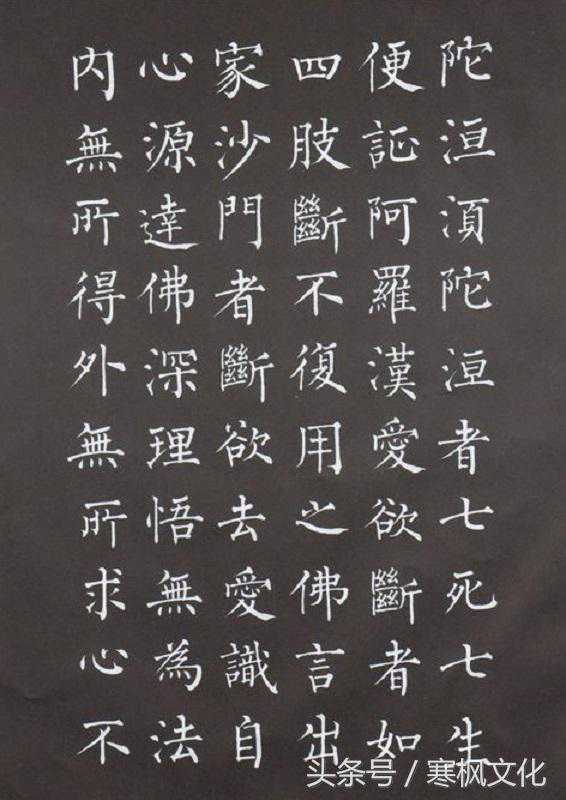 陀洹須陀洹者七死七生
便証阿羅漢愛欲斷者如
四肢斷不復用之佛言出
家沙門者斷欲去愛識自
心源達佛深理悟無為法
内無所得外無所求心不
头条号 / 寒枫文化